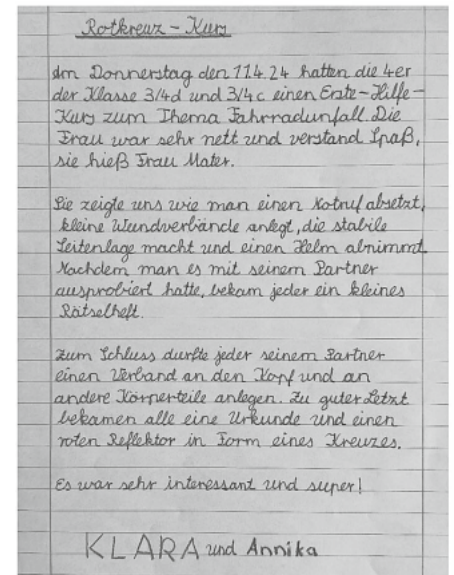 Rotkreuz - Kurs
Am Donnerstag den 11.4.24 hatten die 4er
der Klasse 3/4d und 3/4c einen Erste-Hilfe-
Kurs zum Thema Fahrradunfall. Die
Frau war sehr nett und verstand Spaß,
sie hieß Frau Mater.
Sie zeigte uns wie man einen Notruf absetzt,
kleine Wundverbände anlegt, die stabile
Seitenlage macht und einen Helm abnimmt.
Nachdem man es mit seinem Partner
ausprobiert hatte, bekam jeder ein kleines
Rätselheft.
Zum Schluss durfte jeder seinem Partner
einen Verband an den Kopf und an
andere Körperteile anlegen. Zu guter Letzt
bekamen alle eine Urkunde und einen
roten Reflektor in Form eines Kreuzes.
Es war sehr interessant und super!
KLARA und Annika